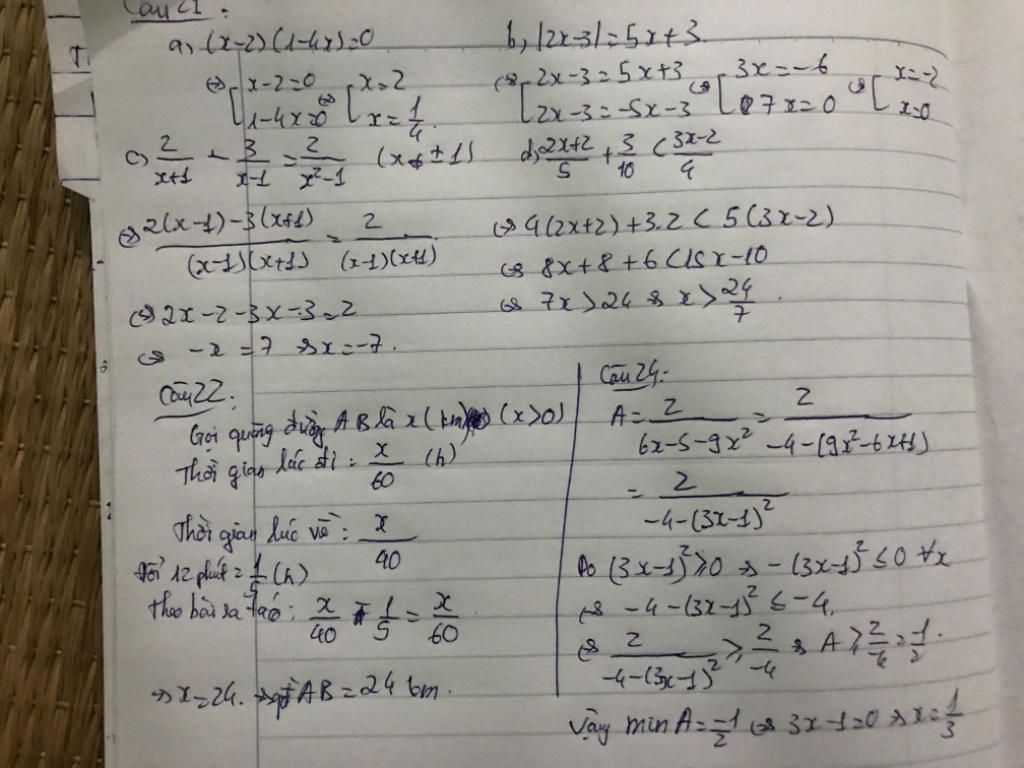 Câu 21:
a, (x-2)(1-4x)=0
⇔ [x-2=0 [1-4x=0 ⇔ [x=2 [x=1/4.
b, |2x-3|=5x+3
⇔ [2x-3=5x+3 [2x-3=-5x-3 ⇔ [3x=-6 [7x=0 ⇔ [x=-2 [x=0
c, 2/(x+1) - 3/(x-1) = 2/(x²-1) (x≠±1)
⇔ (2(x-1)-3(x+1))/((x-1)(x+1)) = 2/((x-1)(x+1))
⇔ 2x-2-3x-3=2
⇔ -x=7 ⇔ x=-7.
d, (2x+2)/5 + 3/10 < (3x-2)/4
⇔ 4(2x+2)+3.2<5(3x-2)
⇔ 8x+8+6<15x-10
⇔ 7x>24 ⇔ x>24/7.
Câu 22:
Gọi quãng đường AB là x (km) (x>0)
Thời gian lúc đi: x/60 (h)
Thời gian lúc về: x/40
Đổi 12 phút = 1/5 (h)
Theo bài ra ta có: x/40 - 1/5 = x/60
⇒ x=24. ⇒ qđ AB = 24 km.
Câu 24:
A= 2/(6x-5-9x²) = 2/(-4-(9x²-6x+1))
= 2/(-4-(3x-1)²)
Do (3x-1)²≥0 ⇒ -(3x-1)²≤0 ∀x
⇔ -4-(3x-1)²≤-4.
⇔ 2/(-4-(3x-1)²) ≥ 2/-4 ⇔ A≥ 2/-4 = -1/2.
Vậy min A = -1/2 ⇔ 3x-1=0 ⇒ x=1/3